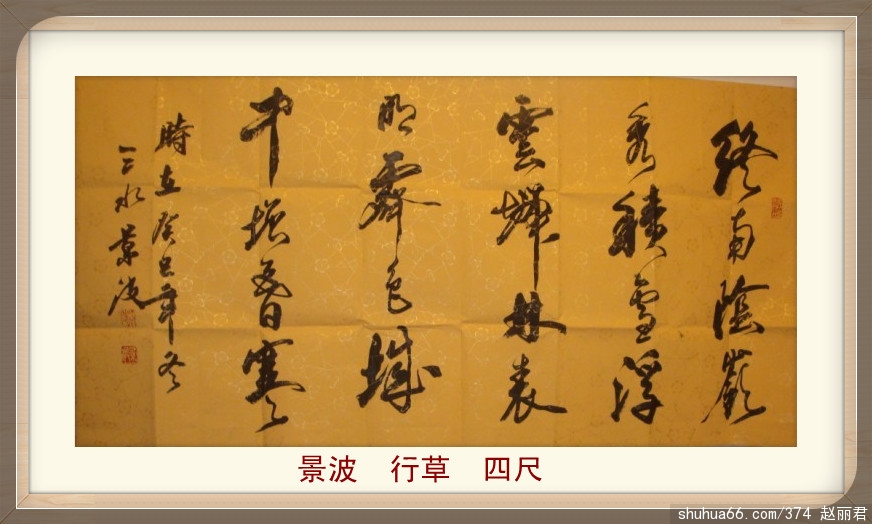 終南陰嶺
秀積雪浮
雲端林表
明霽色城
中增暮寒
時在癸巳年冬
三水景波
景波 行草 四尺
shuhua66.com/374 赵丽君